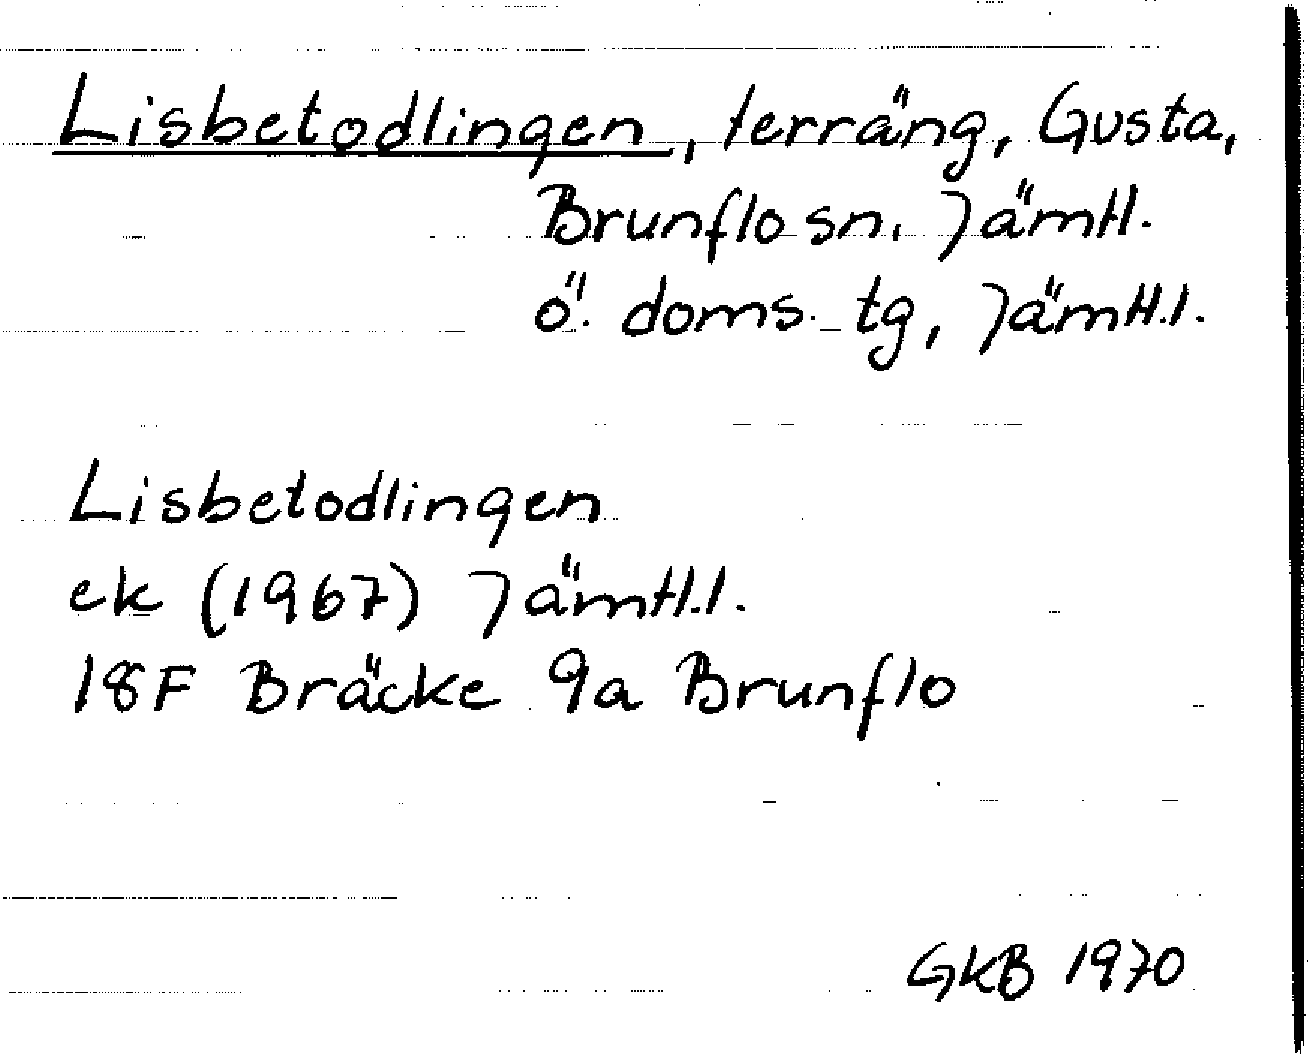 Lisbetodlingen, terräng, Gusta,
Brunflo sn, Jämtl.
ö. doms. tg, Jämtl.l.
Lisbetodlingen
ek (1967) Jämtl.l.
18F Bräcke 9a Brunflo
GKB 1970